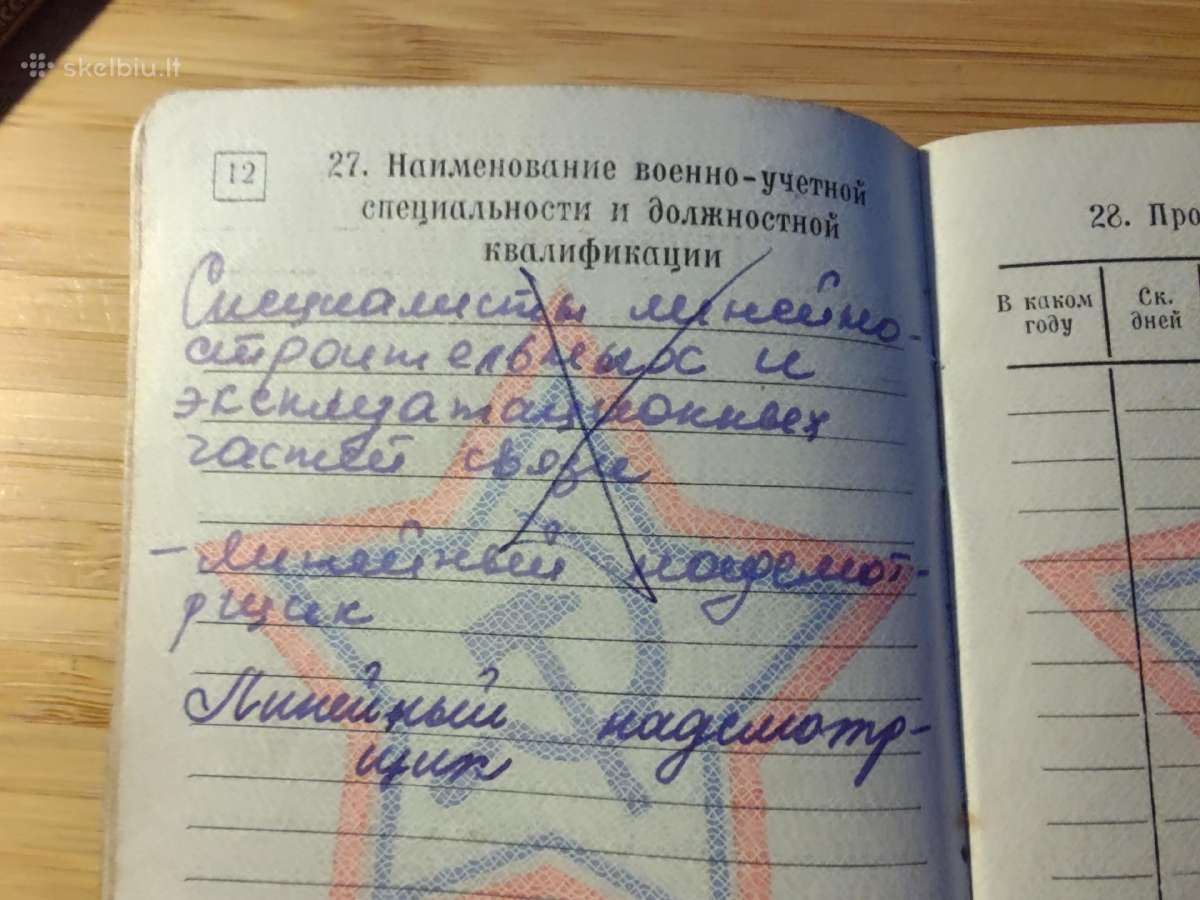 skelbiu.lt
12
27. Наименование военно-учетной
специальности и должностной
квалификации
Специалисты линейно-
строительных и
эксплуатационных
частей связи
- линейный надсмот-
рщик
Линейный надсмотр-
щик
28. Про
В каком
году
Ск.
дней